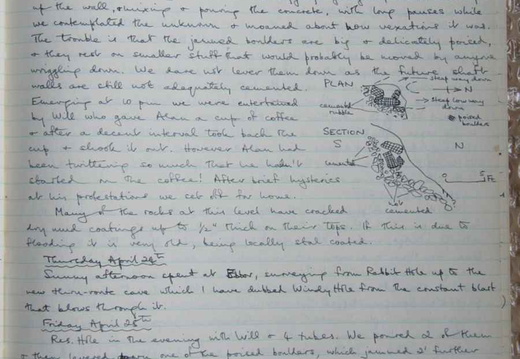 of the wall, & mixing & pouring the concrete, with long pauses while
we contemplated the unknown & moaned about how vexatious it was.
The trouble is that the jammed boulders are big & delicately poised,
& they rest on smaller stuff that would probably be moved by anyone
wriggling down. We dare not lever them down as the future shaft
walls are still not adequately cemented.
Emerging at 10 pm we were entertained
by Will who gave Alan a cup of coffee
& after a decent interval took back the
cup & shook it out. However Alan had
been twittering so much that he hadn't
started on the coffee! After brief hysterics
at his protestations we set off for home.
PLAN
steep way down
N
cemented rubble
steep low way down
poised boulders
SECTION
S
N
cemented
5 Ft
cemented
Many of the rocks at this level have cracked
dry mud coatings up to ½" thick on their tops. If this is due to
flooding it is very old, being locally stal coated.
Thursday April 24th
Sunny afternoon spent at Ebbor, surveying from Rabbit Hole up to the
new thru-route cave which I have dubbed Windy Hole from the constant blast
that blows through it.
Friday April 25th
Res. Hole in the evening with Will & 4 tubes. We poured 2 of them
& then levered down one of the poised boulders, which jammed 2' further